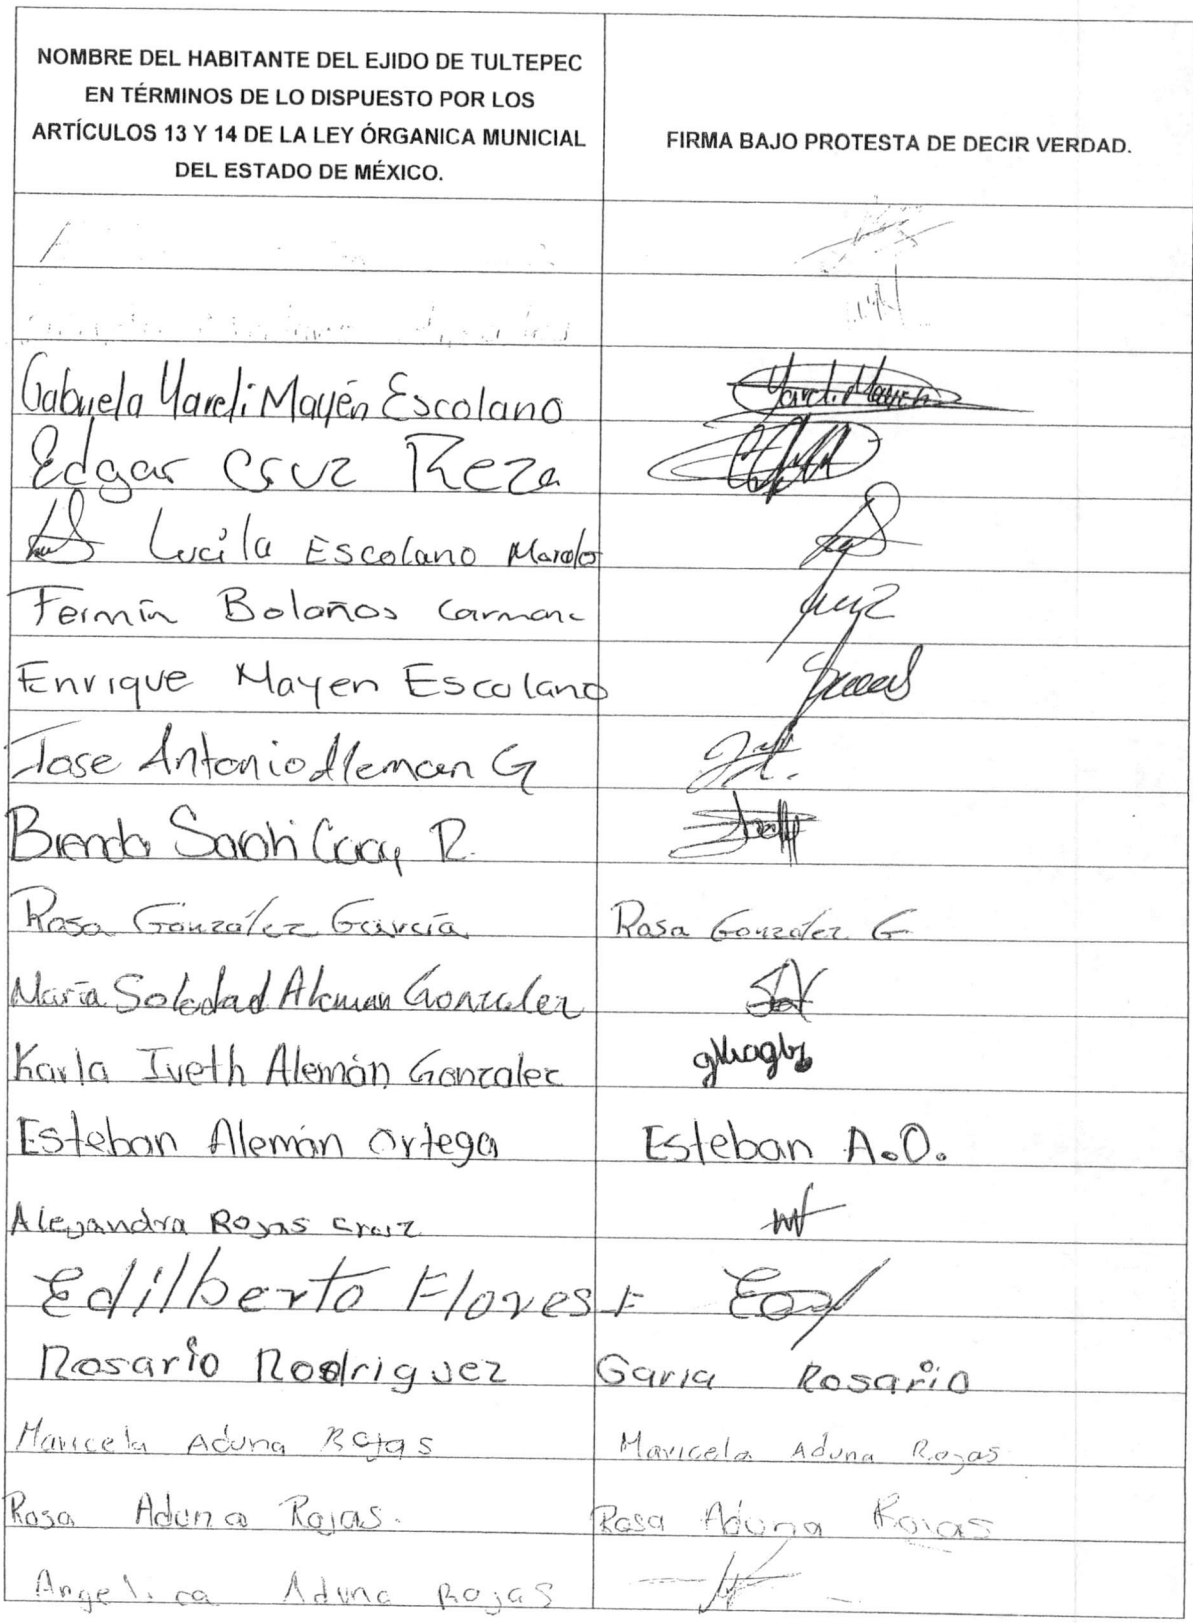 NOMBRE DEL HABITANTE DEL EJIDO DE TULTEPEC
EN TÉRMINOS DE LO DISPUESTO POR LOS
ARTÍCULOS 13 Y 14 DE LA LEY ÓRGANICA MUNICIAL
DEL ESTADO DE MÉXICO.
FIRMA BAJO PROTESTA DE DECIR VERDAD.
Gabriela Yareli Mayén Escolano Yareli Mayen
Edgar Cruz Reza
Lucila Escolano
Fermín Bolaños Carmona
Enrique Mayen Escolano
Jose Antonio Aleman G
Brenda Sarahi R.
Rosa González García Rosa González G
María Soledad Aleman Gonzalez
Karla Iveth Alemán Gonzalez
Esteban Alemán Ortega Esteban A.O.
Alejandra Rojas Cruz
Edilberto Flores F
Rosario Rodriguez Garia Rosario
Maricela Aduna Rojas Maricela Aduna Rojas
Rosa Aduna Rojas. Rosa Aduna Rojas
Angelica Aduna Rojas